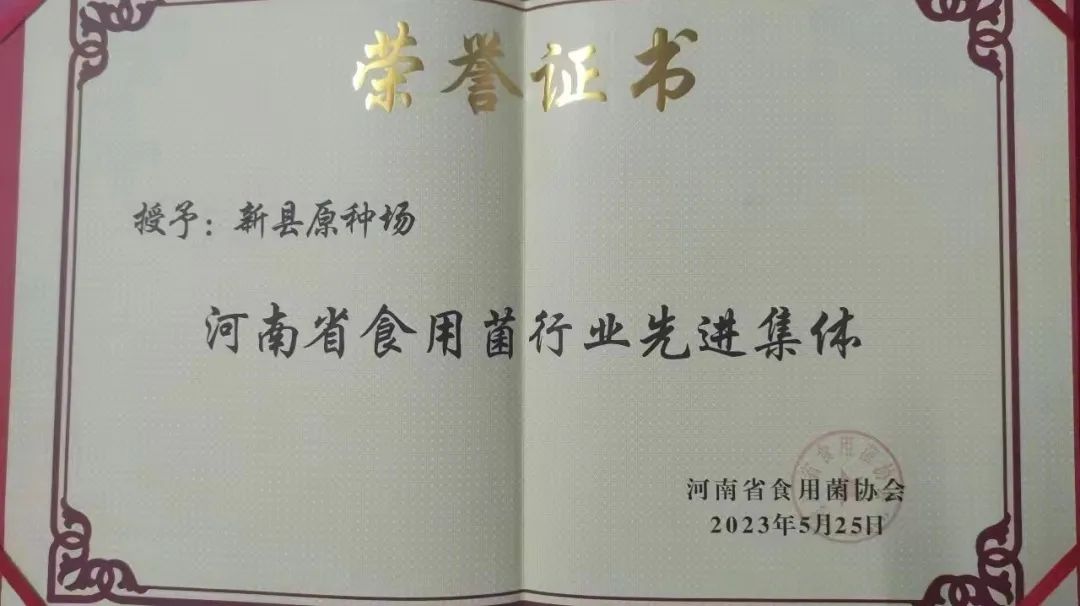 荣誉证书
授予：新县原种场
河南省食用菌行业先进集体
河南省食用菌协会
2023年5月25日